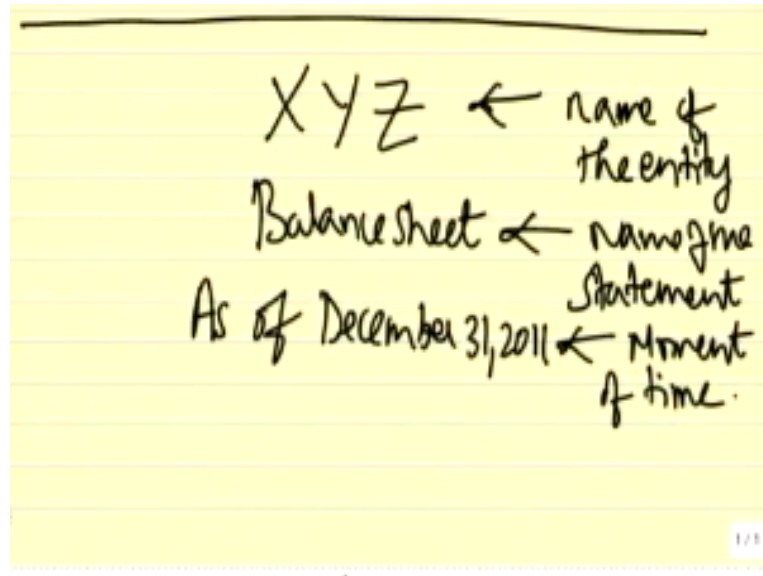 XYZ ← name of
the entity
Balance sheet ← name of the
Statement
As of December 31, 2011 ← Moment
of time.
1/1